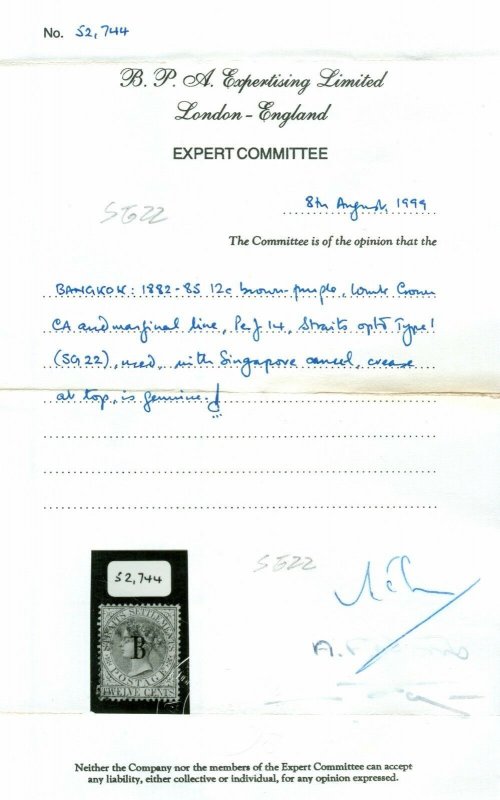 No. 52,744
B. P. A. Expertising Limited
London - England
EXPERT COMMITTEE
8th August, 1999
SG22
The Committee is of the opinion that the
BANGKOK: 1882-85 12c brown-purple, wmk Crown
CA and marginal line, Perf 14, Straits optd Type 1
(SG22), used, with Singapore cancel, crease
at top, is genuine.
SG22
52,744
STRAITS SETTLEMENTS
B
POSTAGE
TWELVE CENTS
Neither the Company nor the members of the Expert Committee can accept
any liability, either collective or individual, for any opinion expressed.